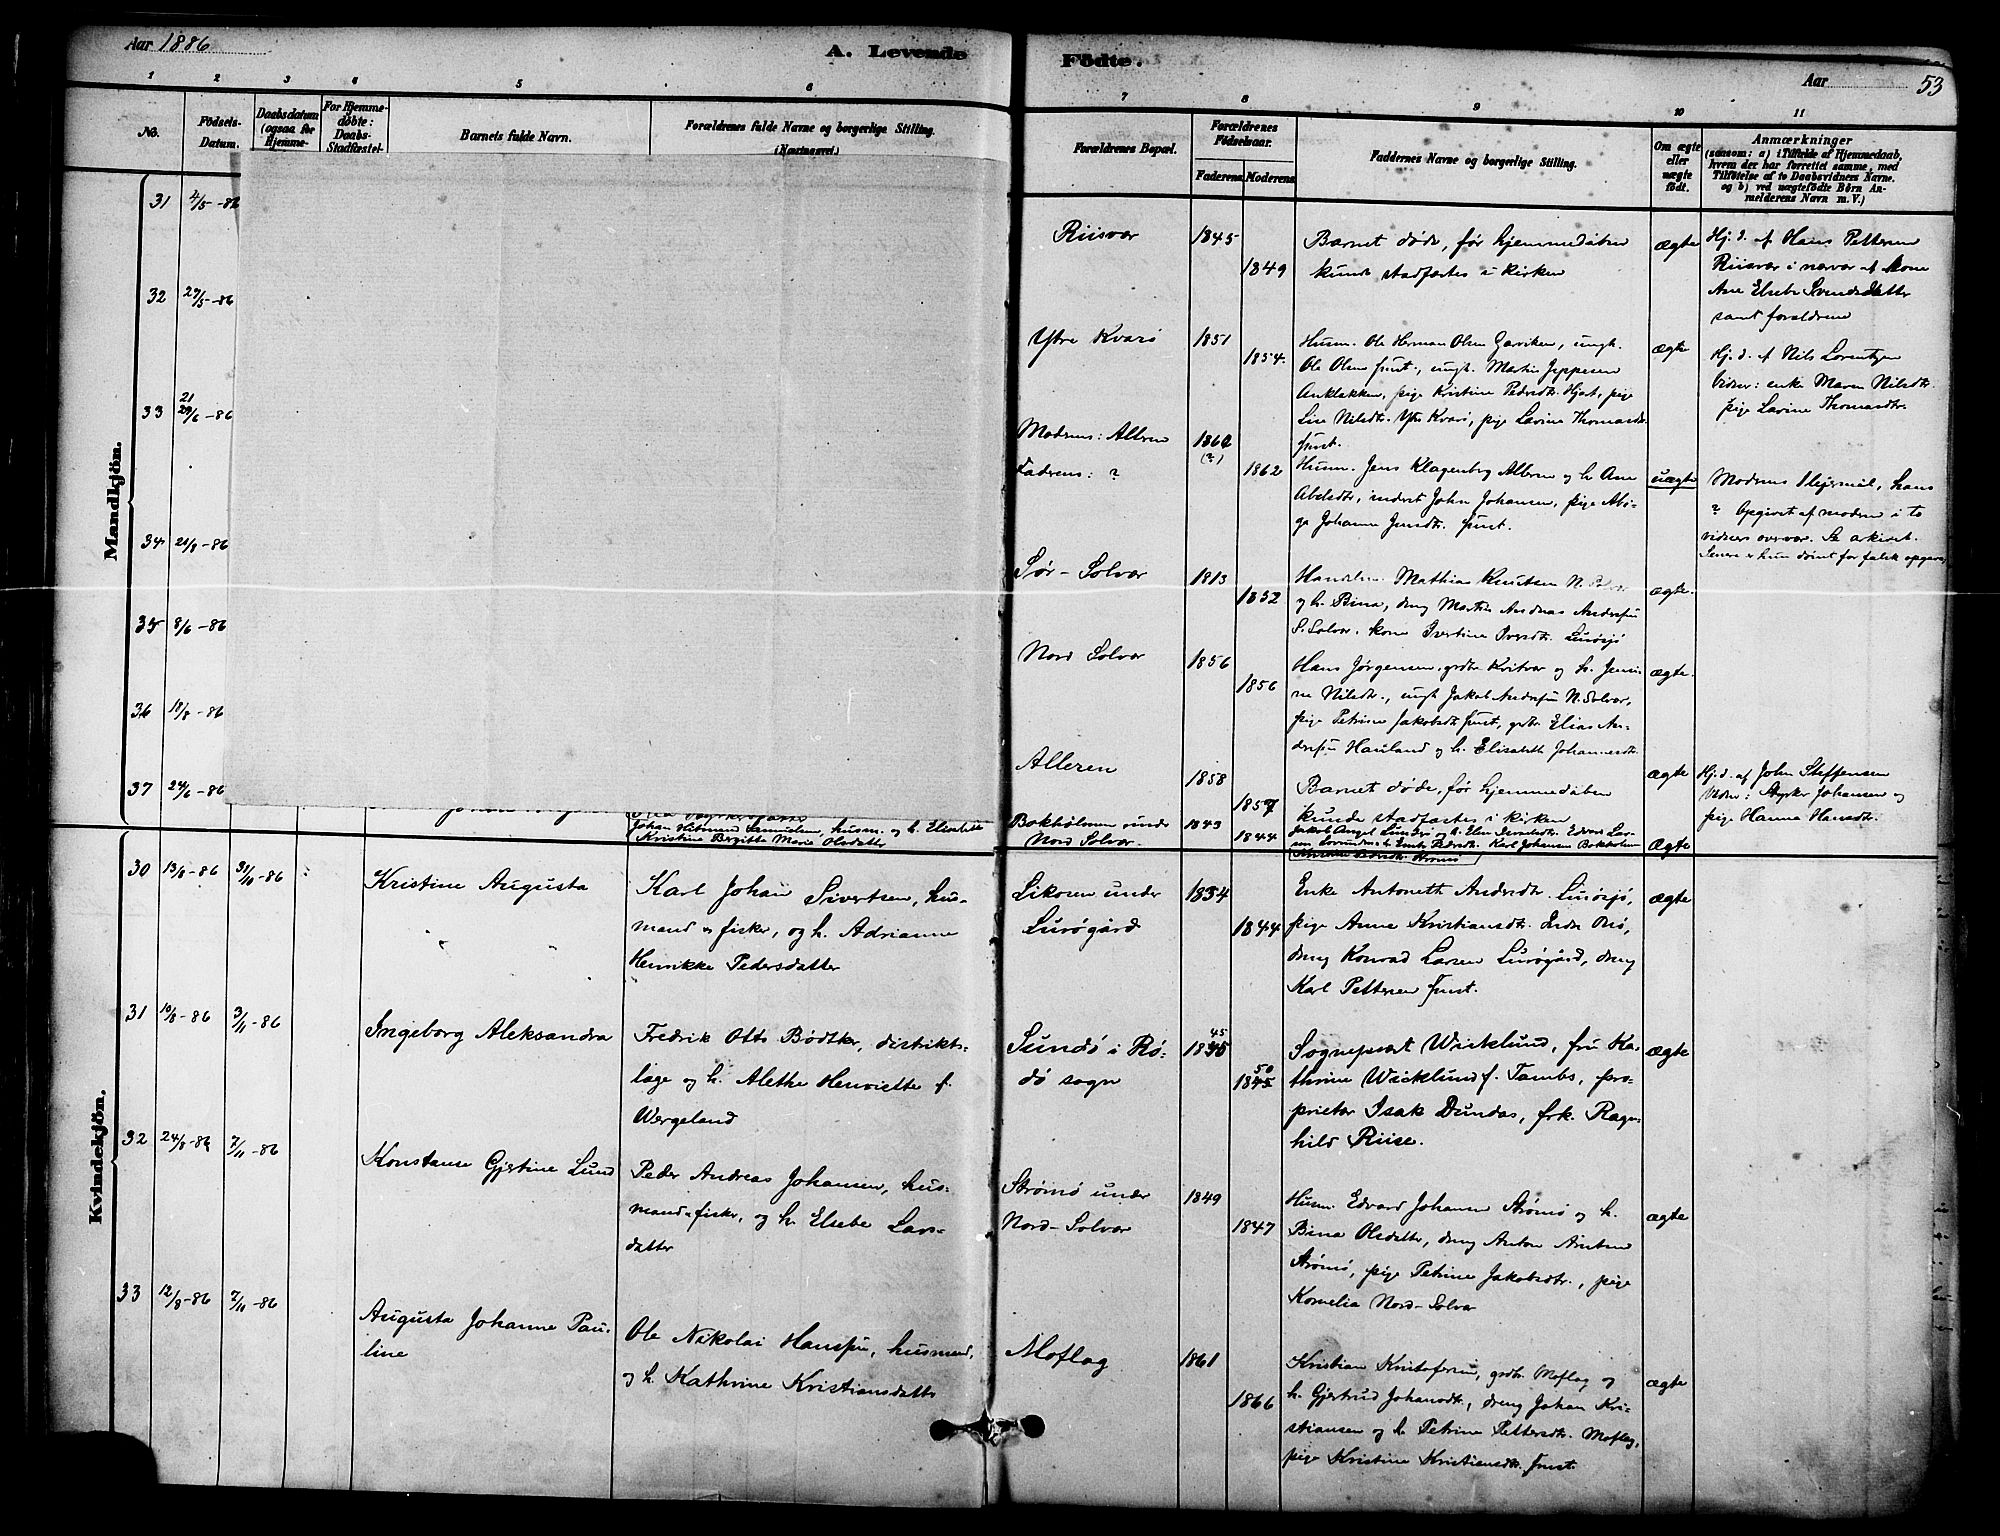 Aar 1886
A. Levende Födte.
Aar 53
1 2 3 4 5 6 7 8 9 10 11
No.
Födsels-
Datum.
Daabsdatum
(ogsaa for
Hjemme-
For Hjemme-
døbte:
Daabs-
Stadfæstel-
Barnets fulde Navn.
Forældrenes fulde Navne og borgerlige Stilling.
Forældrenes Bopæl.
Forældrenes
Födselsaar.
Faderens. Moderens.
Faddernes Navne og borgerlige Stilling.
Om ægte
eller
uægte
födt.
Anmærkninger
(saasom: a) i Tilfælde af Hjemmedaab,
hvem der har forrettet samme, med
Tilføielse af to Daabsvidners Navne.
og b) ved uægtefödte Børn An-
melderens Navn m. V.)
Mandkjön.
31 4/5 - 86
Riisvær
1845
1849
Barnet døde, før hjemmedåben
kunde stadfæstes i kirken
ægte
Hj. d. af Hans Pettersen
Riisvær i nærvær af kone
Ane Elsebe Svendsdatter
samt forældrene
32 29/5 - 86
Ytre Kvarø
1851
1854
Husm. Ole Herman Olsen Garviken, ungk.
Ole Olsen smst., ungk. Martin Jeppesen
pige Kristine Pedersdt. Hjart, pige
Line Nilsdt. Ytre Kvarø, pige Lavine Thomasdt.
smst.
ægte
Hj. d. af Nils Lorentzen
Vidner: enke Maren Nilsdt.
pige Lavine Thomasdt.
33 21 29/6 - 86
Moderens: Alleren
Faderens: ?
(?)
1862
Husm. Jens Klagenberg Alleren og h. Ane
Abelsdt., inderst John Johansen, pige
Johanna Jensdt. smst.
uægte
Modrens 1 lejermål, hans
? Opgivet af moderen i to
vidners overvær. Se arkivet.
Senere er hun dømt for falsk opgave
34 21/8 - 86
Sør-Solvær
1813
1852
Mathias Knutsen N.
og h. Bina, dreng Martin Andreas Andersen
S. Solvær. kone Ivertine Iversdt. Lurøsjø
ægte.
35 8/6 - 86
Nord Solvær
1856
1856
Hans Jørgensen, grdbr Kvitvær og h. Jensi-
ne Nilsdt., ungk Jakob Andersen N. Solvær,
pige Petrine Jakobsdt smst, grdbr. Elias An-
dersen Hauland og h. Elisabeth Johannesdt.
ægte.
36 18/8 - 86
Alleren
1858
1857
Barnet døde, før hjemmedåben
kunde stadfæstes i kirken
ægte
Hj. d. af John Steffensen
Vidner: Styrker Johansen og
pige Hanna Hansdt.
37 24/6 - 86
husm. og h. Elisabeth
Kristine Birgitte Marie Olsdatter
Bokholmen under
Nord Solvær.
1843
1844
Karl Johansen Bokholmen
ægte
Kvindekjön.
30 13/8 - 86 31/10 - 86
Kristine Augusta
Karl Johan Sivertsen, hus-
mand & fisker, og h. Adrianne
Henrikke Pedersdatter
Likoren under
Lurøgård
1834
1844
Enke Antonette Andersdt. Lurøsjø,
pige Anne Kristiansdt. Indre Risø,
dreng Konrad Larsen Lurøgård, dreng
Karl Pettersen smst.
ægte
31 10/8 - 86 3/11 - 86
Ingeborg Aleksandra
Fredrik Otto Bødtker, distrikts-
læge og h. Alethe Henriette f.
Wergeland
Sundø i Rø-
dø sogn
45
50
1845
Sognepræst Wicklund, fru Ka-
thrine Wicklund f. Tambs, pro-
prietær Isak Dundas, frk. Ragn-
hild Riise.
ægte
32 24/8 - 86 7/11 - 86
Konstanse Gjertine Lund
Peder Andreas Johansen, hus-
mand & fisker, og h. Elsebe Lars-
datter
Strømø under
Nord-Solvær
1849
1847
Husm. Edvard Johansen Strømø og h.
Bina Olsdatter, dreng Anton Arntsen
Strømø, pige Petrine Jakobsdtr., pige
Kornelia Nord-Solvær
ægte
33 12/8 - 86 7/11 - 86
Augusta Johanne Pau-
line
Ole Nikolai Hansen, husmand,
og h. Kathrine Kristiansdatter
Moflag
1861
1866
Kristian Kristofersen, grdbr. Moflag og
h. Gjertrud Johansdt., dreng Johan Kri-
stiansen og h. Petrine Pettersdt. Moflag,
pige Kristine Kristiansdt. smst.
ægte